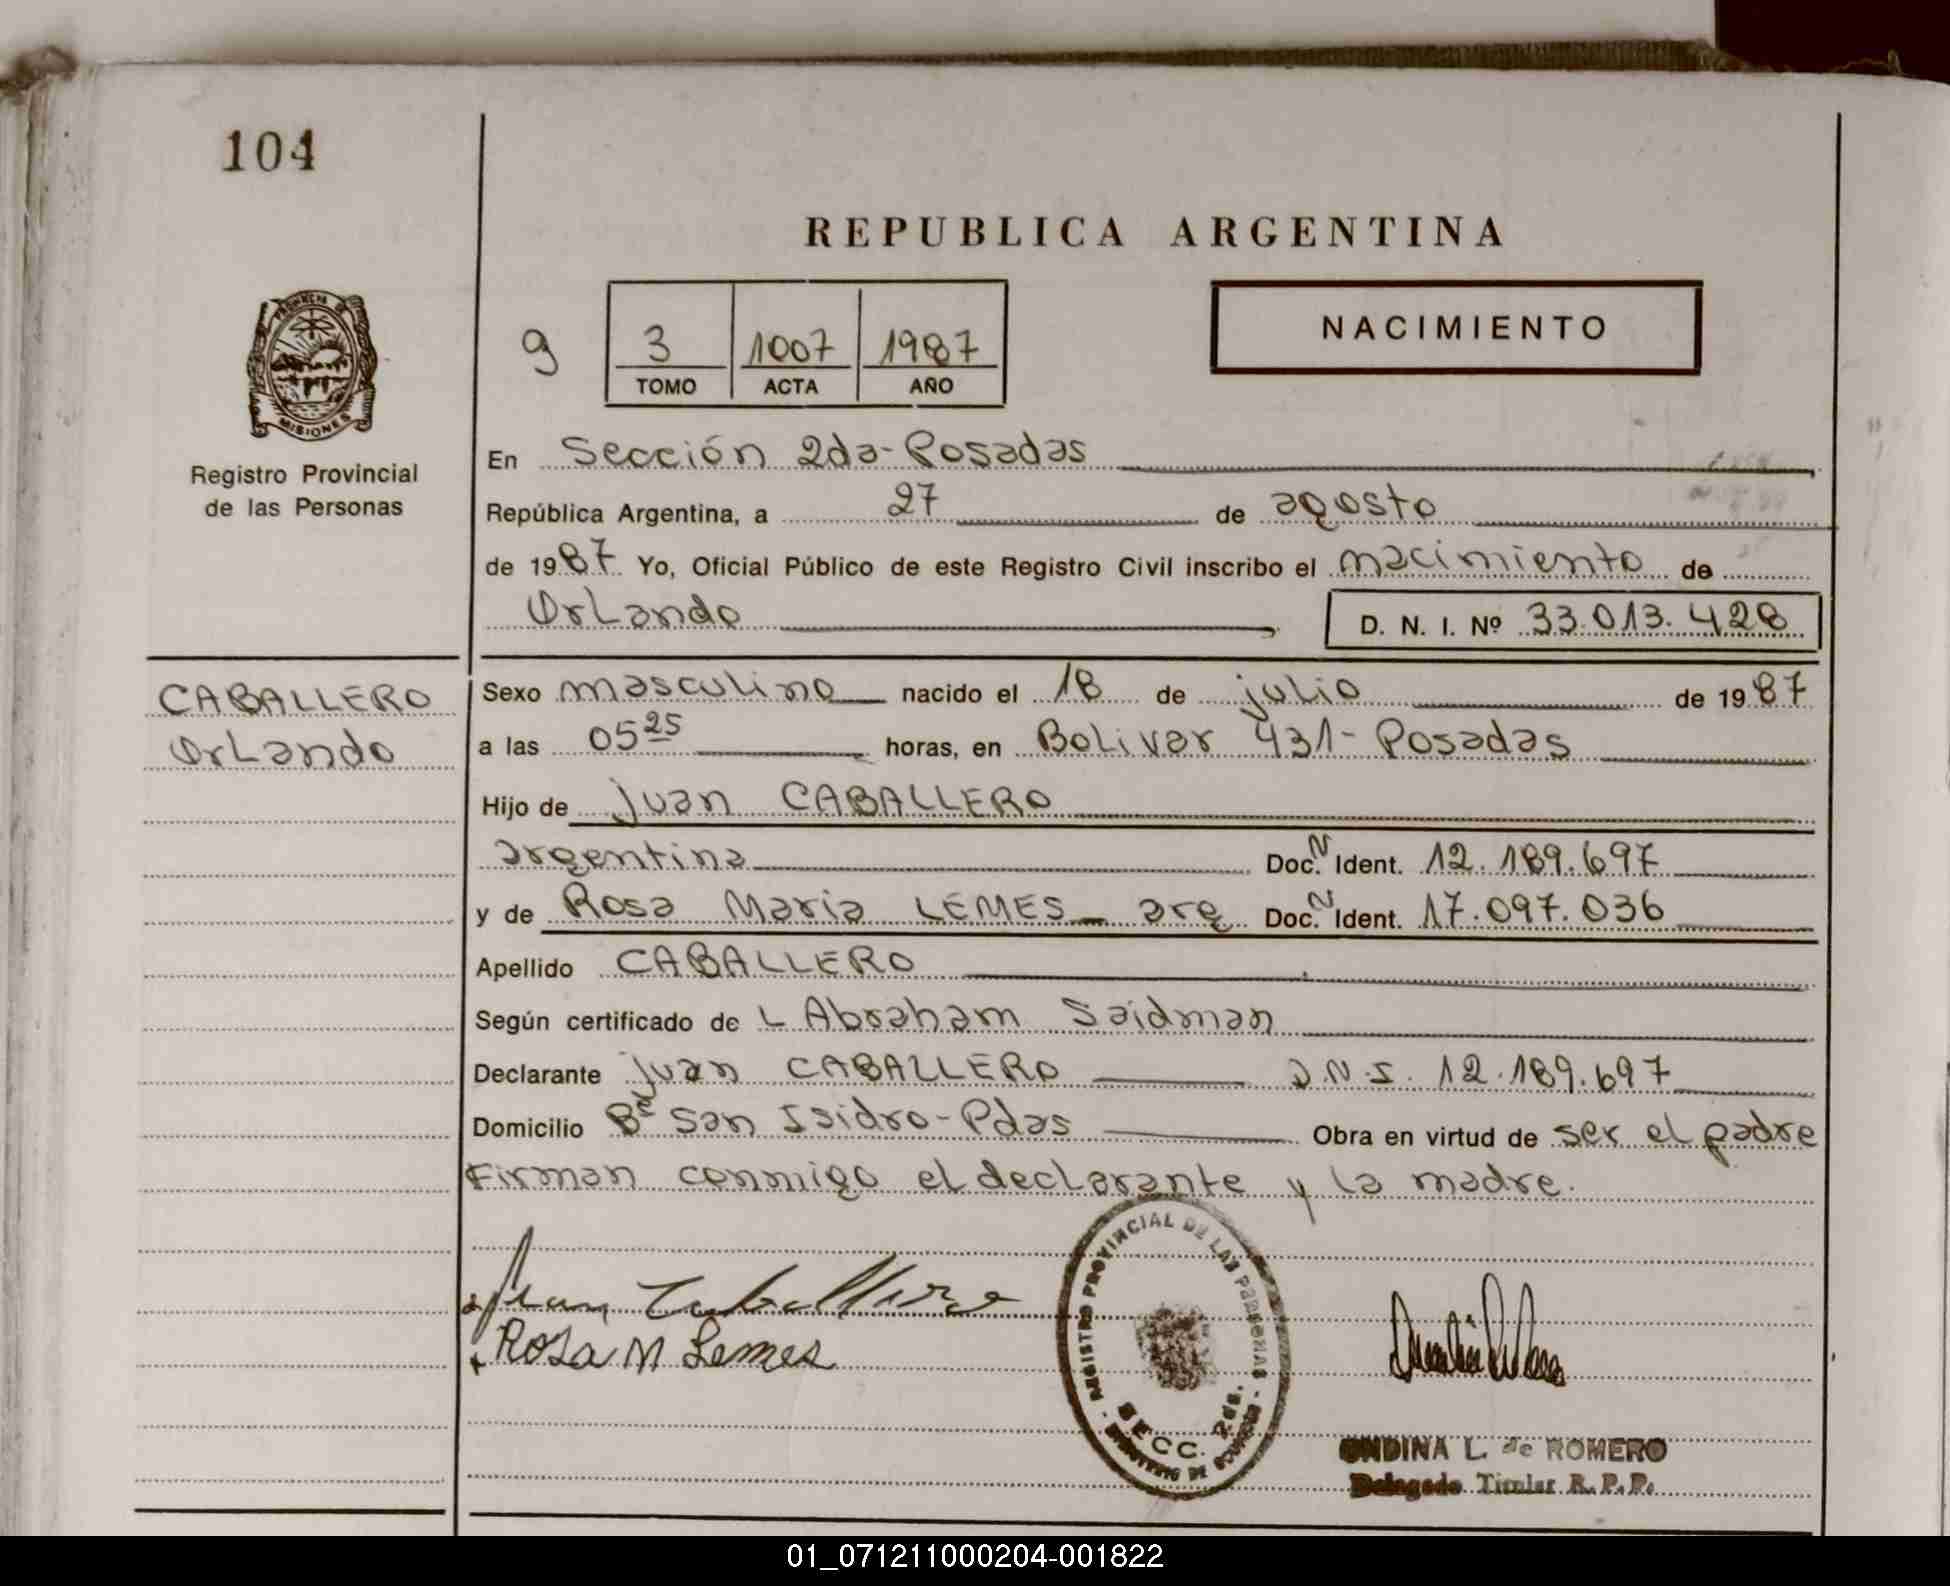 104
REPUBLICA ARGENTINA
PROVINCIA DE
MISIONES
Registro Provincial
de las Personas
9
3 1007 1987
TOMO ACTA AÑO
NACIMIENTO
En Sección 2da-Posadas
República Argentina, a 27 de agosto
de 1987 Yo, Oficial Público de este Registro Civil inscribo el nacimiento de
Orlando D. N. I. Nº 33.013.428
CABALLERO
Orlando
Sexo masculino nacido el 18 de julio de 1987
a las 05 25 horas, en Bolivar 431- Posadas
Hijo de Juan CABALLERO
argentina Doc. N Ident. 12.189.697
y de Rosa Maria LEMES arg Doc. N Ident. 17.097.036
Apellido CABALLERO
Según certificado de L Abraham Saidman
Declarante Juan CABALLERO D.N.I. 12.189.697
Domicilio Bº San Isidro-Pdas Obra en virtud de ser el padre
Firman conmigo el declarante y la madre.
Juan Caballero
Rosa M Lemes
REGISTRO PROVINCIAL DE LAS PERSONAS
SECC. 2da.
MINISTERIO DE GOBIERNO
ONDINA L. de ROMERO
Delegado Titular R. P. P.
01_071211000204-001822